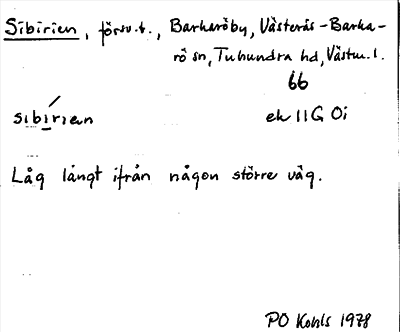 Sibirien, försv.t., Barkaröby, Västerås-Barka-
rö sn, Tuhundra hd, Västm. l.
66
sibírien ek 11G 0i
Låg långt ifrån någon större väg.
PO Kohls 1978